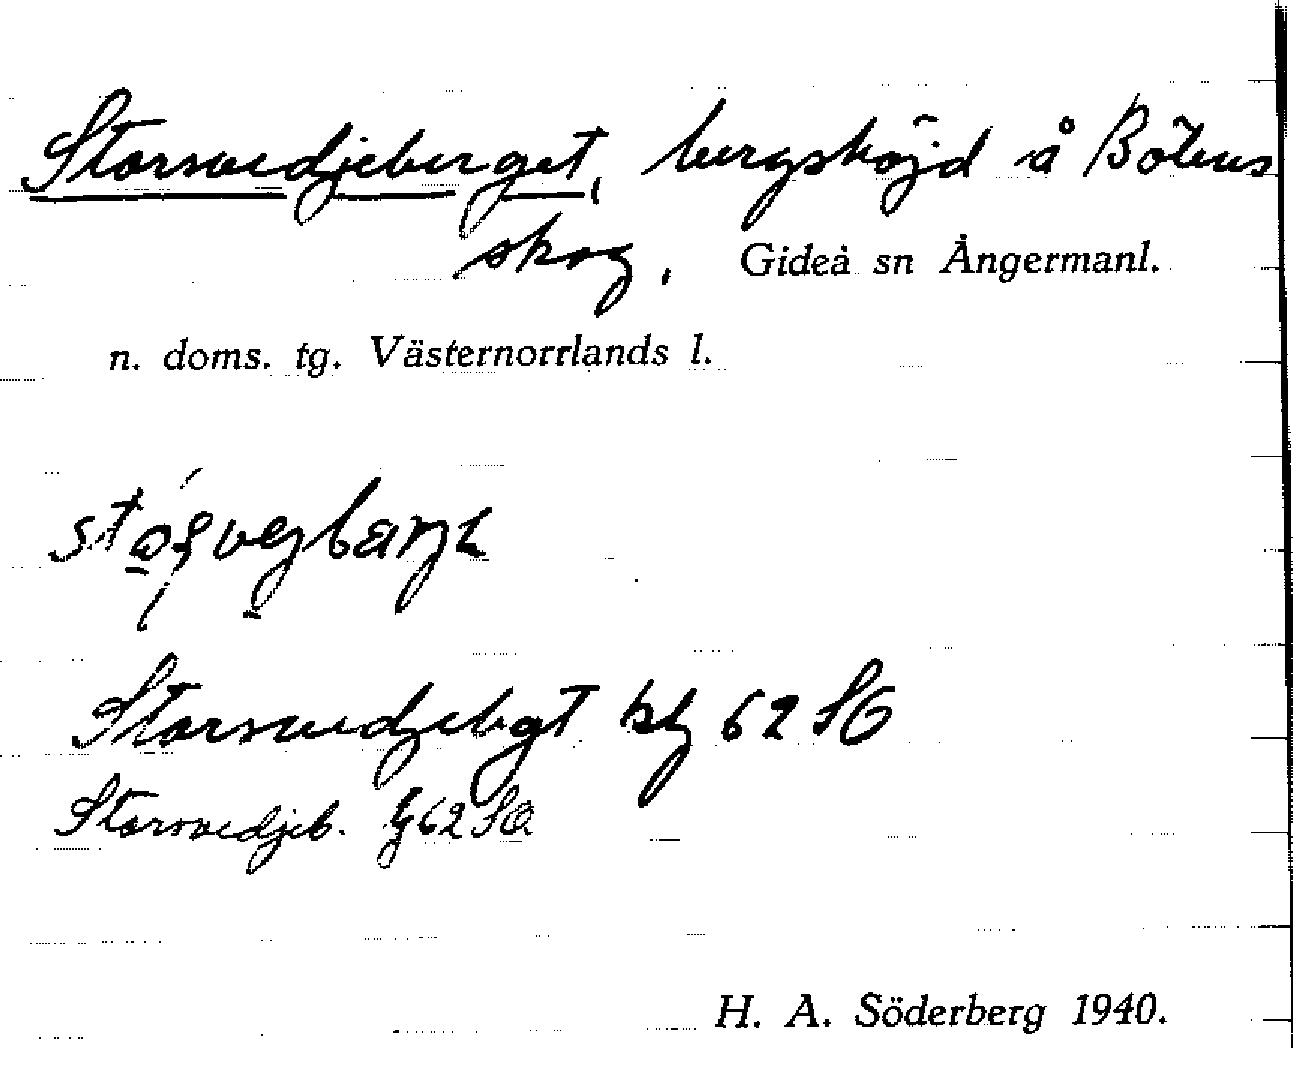 Storsvedjeberget, bergshöjd å Bölens
skog, Gideå sn Ångermanl.
n. doms. tg. Västernorrlands l.
Storsvedjebgt 62 SO
Storsvedjeb. 62 SO
H. A. Söderberg 1940.